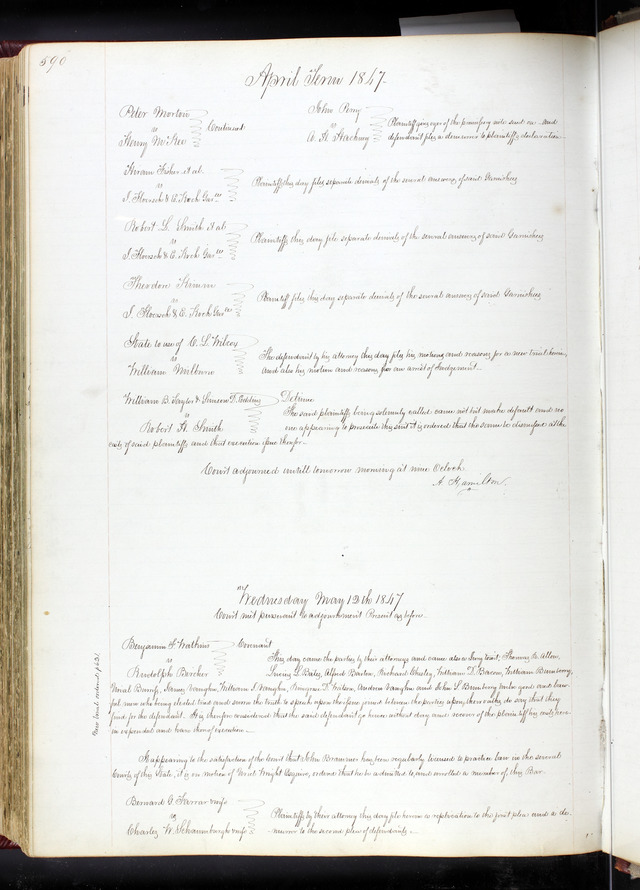 590
April Term 1847
Peter Morton
vs
Henry McKee
Covenant
John Perry
vs
A. H.
Plaintiff gives oyer of the promissory note sued on and
defendant files a demurrer to plaintiffs declaration
Hiram Fisher et al
vs
& C. Koch Gar
Plaintiffs this day file separate denials of the several answers of said Garnishees
Robert L. Smith et al
vs
& C. Koch Gar
Plaintiffs this day file separate denials of the several answers of said Garnishees
Theodore
vs
& C. Koch Gar
Plaintiff files this day separate denials of the several answers of said Garnishees
State to use of C. L. Wilcox
vs
William Milburn
The defendant by his attorney this day files his motion and reasons for a new trial herein
And also his motion and reasons for an arrest of Judgement
William B. Taylor & T.
vs
Robert H. Smith
Detinue
The said plaintiffs being solemnly called came not but make default and no
one appearing to prosecute this suit it is ordered that the same be dismissed at the
costs of said plaintiffs and that execution issue therefor
Court adjourned untill tomorrow morning at nine Oclock
A. Hamilton
Wednesday May 12th 1847
Court met pursuant to adjournment Present as before
Benjamin F. Watkins
vs
Rudolph Barcher
Covenant
This day came the parties by their attorneys and came also a Jury to wit; Thomas W. Allen
L. Bates, Alfred Barton, Richard Chesley, William D. Bacon, William Brambury
Bump, James Vaughn, William S. Vaughn, T. Watson, Andrew Vaughn and John S. Brambury twelve good and law-
ful men who being elected tried and sworn the truth to speak upon the issue joined between the parties upon their oaths do say that they
find for the defendant. It is therefore considered that the said defendant go hence without day and recover of the plaintiff his costs here-
in expended and have thereof execution
New trial entered p 431
It appearing to the satisfaction of the Court that John has been regularly licensed to practice law in the several
Courts of this State, it is on motion of Uriel Wright Esquire, ordered that he be admitted to and enrolled a member of this Bar
Bernard G. Farrar & wife
vs
Charles W. Schaumburgh & wife
Plaintiffs by their attorney this day file herein a replication to the first plea and a de-
murrer to the second plea of defendants